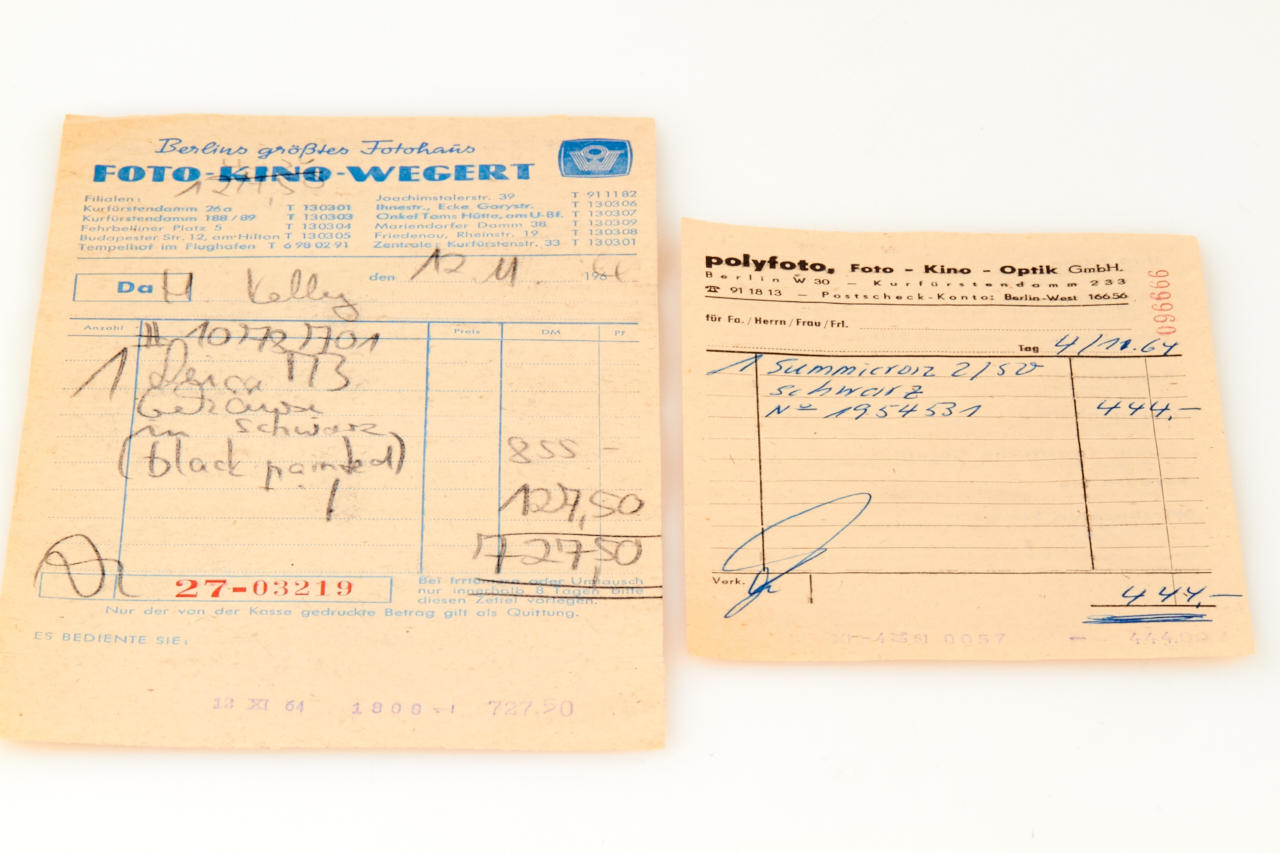 Berlins größtes Fotohaus
FOTO-KINO-WEGERT
127,50
Filialen:
Kurfürstendamm 26a T 130301
Kurfürstendamm 188/89 T 130303
Fehrbelliner Platz 5 T 130304
Budapester Str. 12, am Hilton T 130305
Tempelhof im Flughafen T 6980291
Joachimstalerstr. 39 T 911182
Ihnestr., Ecke Garystr. T 130306
Onkel Toms Hütte, am U-Bf. T 130307
Mariendorfer Damm 38 T 130309
Friedenau, Rheinstr. 19 T 130308
Zentrale: Kurfürstenstr. 33 T 130301
den 12. 11. 196
Da H. Kelly
Anzahl Preis DM Pf
1 Leica M3
Gehäuse
in schwarz
(black painted) 855 -
127,50
727,50
27-03219
Bei Irrtümern oder Umtausch
nur innerhalb 8 Tagen bitte
diesen Zettel vorlegen.
Nur der von der Kasse gedruckte Betrag gilt als Quittung.
ES BEDIENTE SIE:
12 XI 64 1808 -1 727.50
polyfoto, Foto - Kino - Optik GmbH.
Berlin W 30 - Kurfürstendamm 233
☎ 91 18 13 - Postscheck-Konto: Berlin-West 166 56
096666
für Fa./Herrn/Frau/Frl.
Tag 4/11.64
1 Summicron 2/50
schwarz
No 1954531 444,-
Verk.
444,-
0057 - 444.00